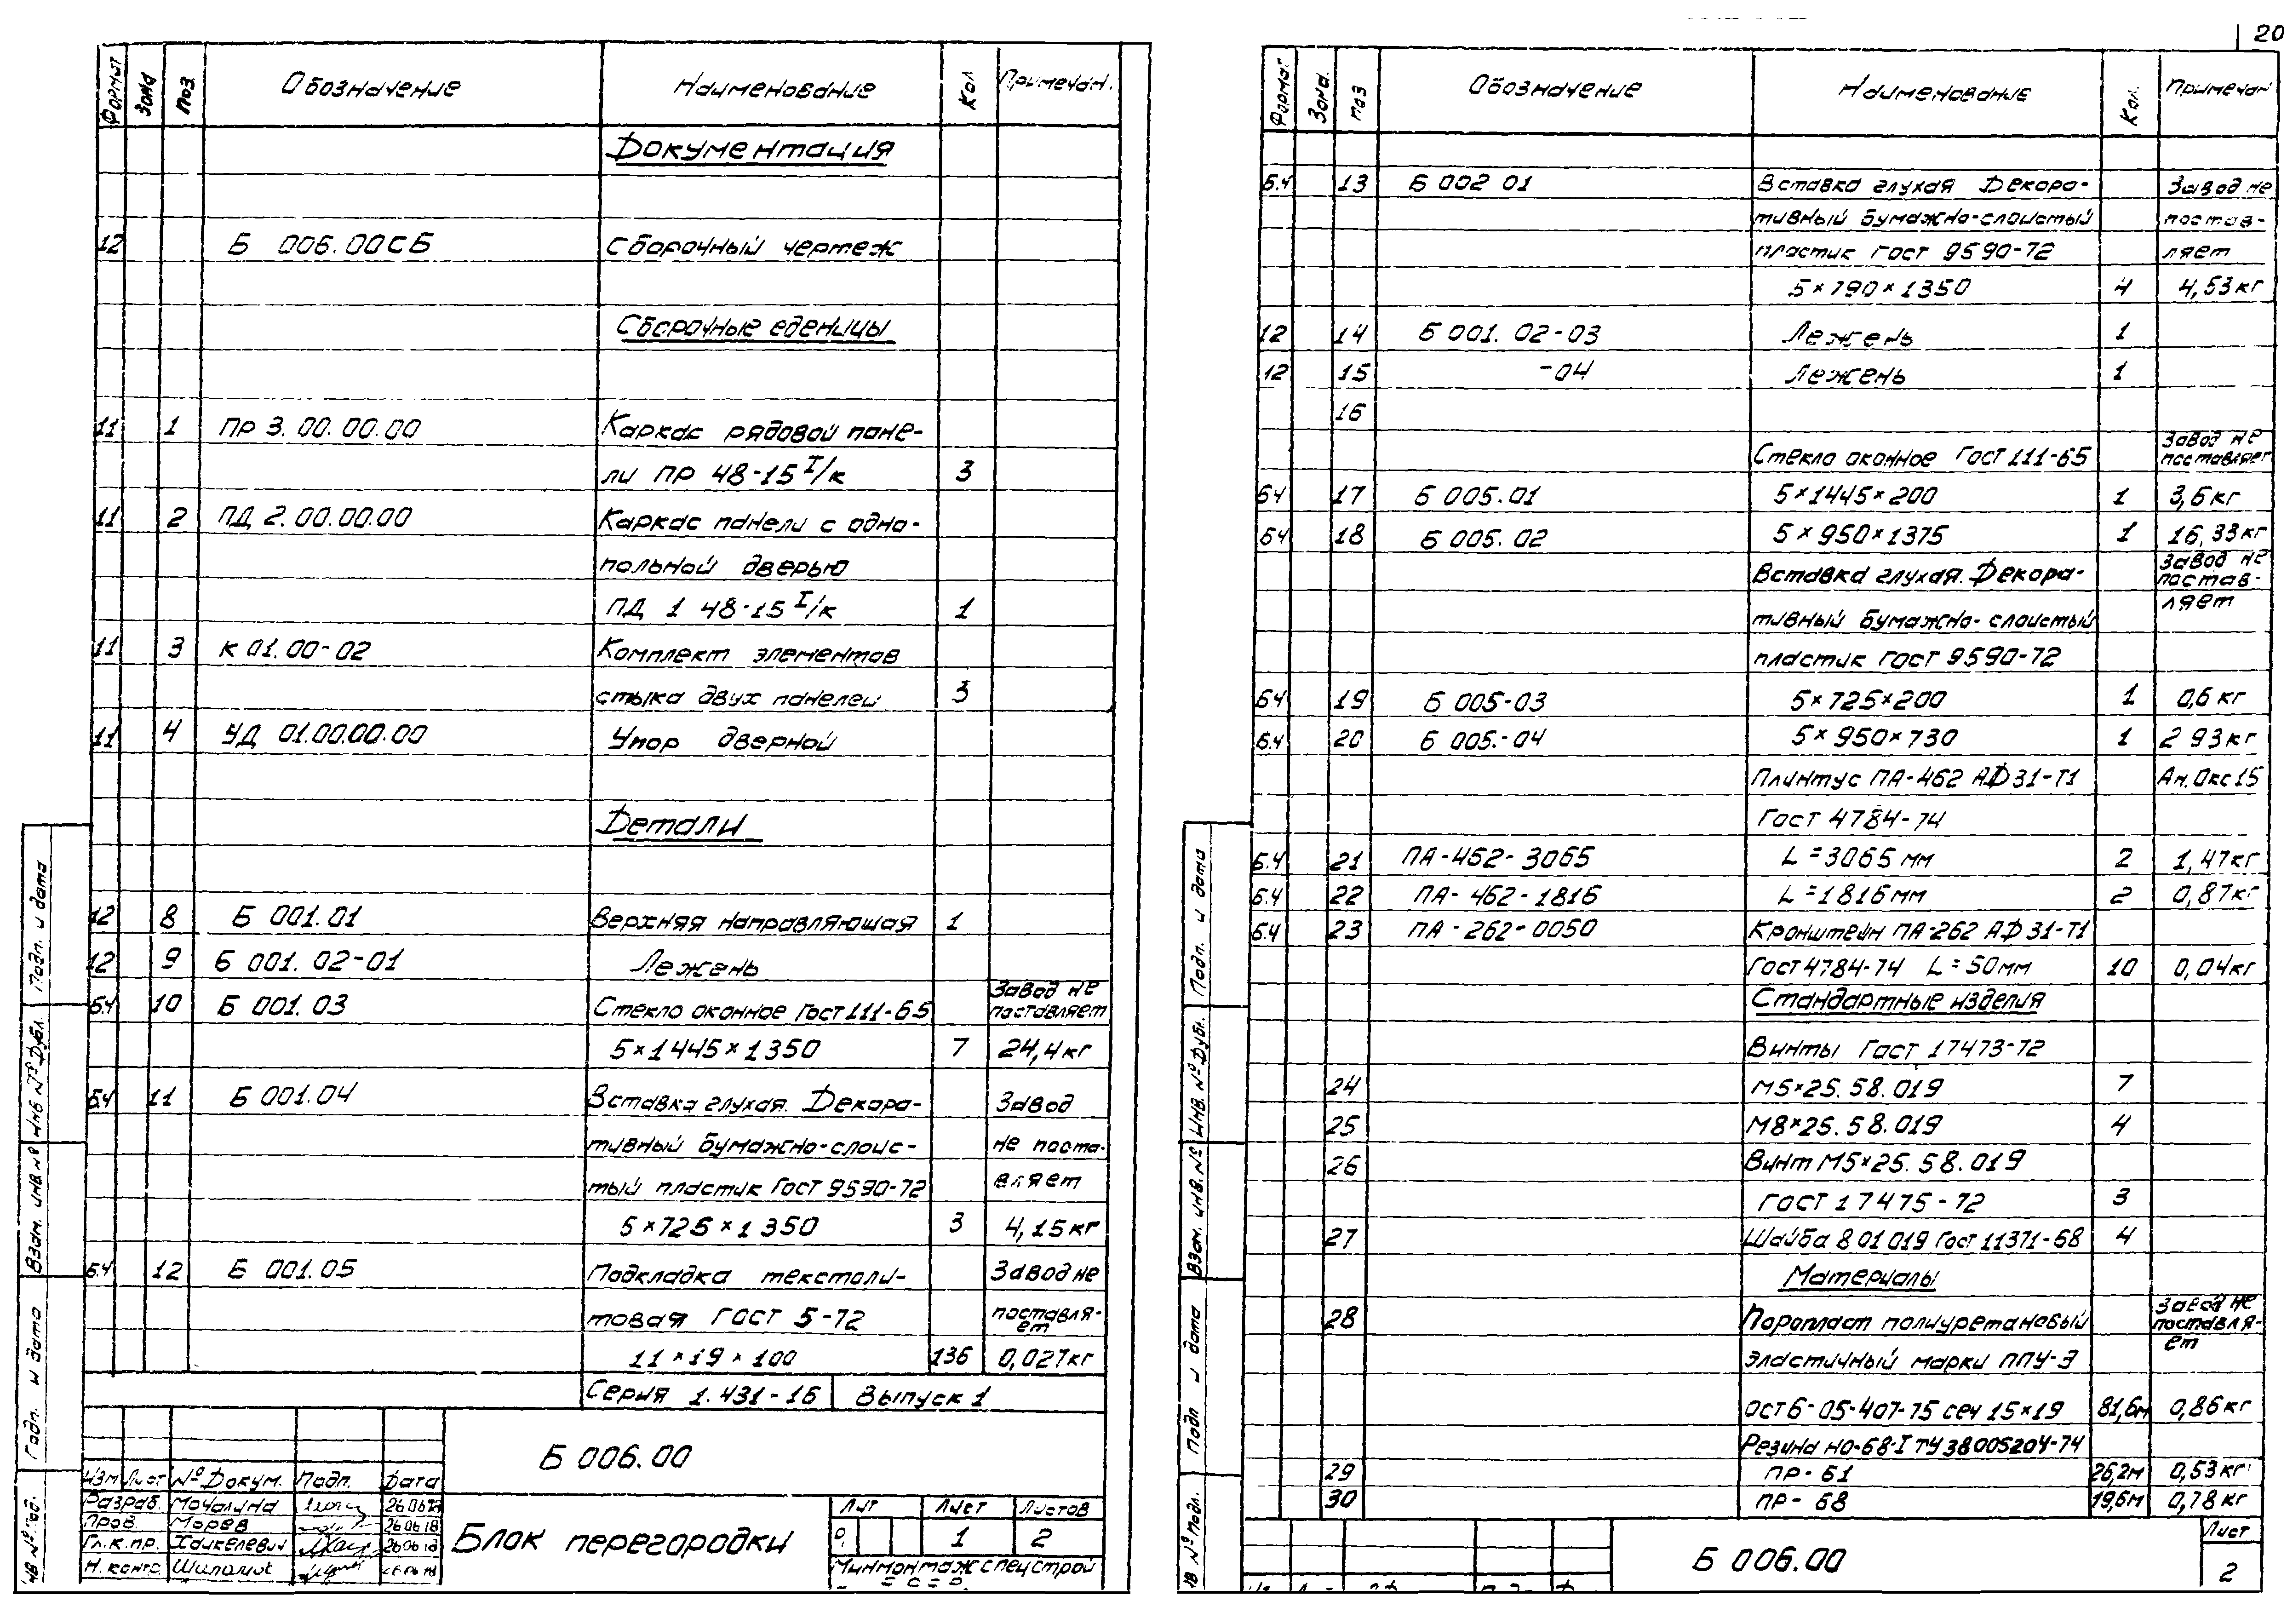 20
Формат Зона Поз. Обозначение Наименование Кол Примечан.
Документация
12 Б 006.00СБ Сборочный чертеж
Сборочные еденицы
11 1 ПР 3.00.00.00 Каркас рядовой пане-
ли ПР 48-15 I/к 3
11 2 ПД 2.00.00.00 Каркас панели с одно-
польной дверью
ПД 1 48-15 I/к 1
11 3 К 01.00-02 Комплект элементов
стыка двух панелей 3
11 4 УД 01.00.00.00 Упор дверной
Детали
12 8 Б 001.01 Верхняя направляющая 1
12 9 Б 001.02-01 Лежень
Завод не
Б.Ч 10 Б 001.03 Стекло оконное Гост 111-65 поставляет
5×1445×1350 7 24,4кг
Б.Ч 11 Б 001.04 Вставка глухая. Декора- Завод
тивный бумажно-слоис- не поста-
тый пластик Гост 9590-72 вляет
5×725×1350 3 4,15кг
Б.Ч 12 Б 001.05 Подкладка тексталь- Завод не
товая ГОСТ 5-72 поставля-
ет
11×19×100 136 0,027кг
Серия 1.431-16 Выпуск 1
Б 006.00
Изм Лист № Докум. Подп. Дата
Разраб. Мочалина
Пров. Морев 26.06.78
Гл.к.пр. Хаикелевич 26.06.78
Н.контр.
Блок перегородки
Лит Лист Листов
1 2
Минмонтажспецстрой
СССР
Подп. и дата
Инв № Дубл.
Взам. инв. №
Подп. и дата
Инв № Подл.
Формат Зона. Поз Обозначение Наименование Кол. Примечан
Б.Ч 13 Б 002 01 Вставка глухая Декора- Завод не
тивный бумажно-слоистый постав-
пластик Гост 9590-72 ляет
5×790×1350 4 4,53кг
12 14 Б 001.02-03 Лежень 1
12 15 -04 Лежень 1
16
Завод не
Стекло оконное Гост 111-65 поставляет
БЧ 17 Б 005.01 5×1445×200 1 3,6кг
БЧ 18 Б 005.02 5×950×1375 1 16,33кг
Завод не
Вставка глухая. Декора- постав-
ляет
тивный бумажно-слоистый
пластик Гост 9590-72
Б.Ч 19 Б 005-03 5×725×200 1 0,6кг
Б.Ч 20 Б 005.-04 5×950×730 1 2 93кг
Плинтус ПА-462 АД31-Т1 Ан.Окс15
Гост 4784-74
Б.Ч 21 ПА-462-3065 L=3065мм 2 1,47кг
Б.Ч 22 ПА-462-1816 L=1816мм 2 0,87кг
Б.Ч 23 ПА-262-0050 Кронштейн ПА-262 АД31-Т1
Гост 4784-74 L=50мм 10 0,04кг
Стандартные изделия
Винты Гост 17473-72
24 М5×25.58.019 7
25 М8×25.58.019 4
26 Винт М5×25.58.019
ГОСТ 17475-72 3
27 Шайба 8 01 019 Гост 11371-68 4
Материалы
Завод не
28 Поропласт полиуретановый поставля-
ет
эластичный марки ППУ-Э
ОСТ 6-05-407-75 сеч 15×19 81,6м 0,86кг
Резина НО-68-I ТУ 38005204-74
29 ПР-61 26,2м 0,53кг
30 ПР-68 19,6м 0,78кг
Б 006.00
Лист
2
Подп. и дата
Инв. № Дубл.
Взам. инв. №
Подп и дата
Инв № Подл.